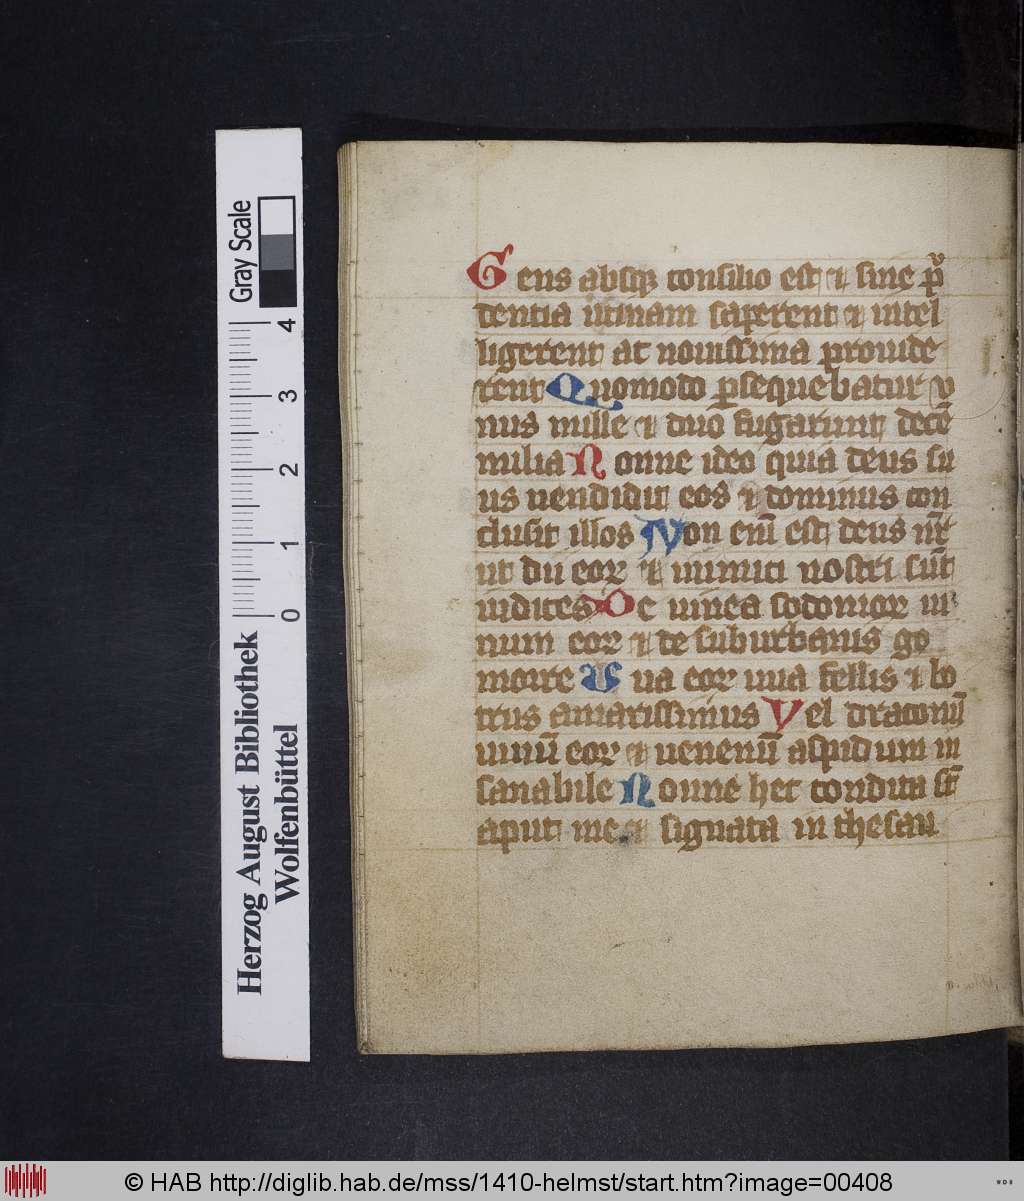 Gens absqꝫ consilio est ⁊ sine ꝓ
dentia utinam saperent ⁊ intel
ligerent ac nouissima prouide
rent Quomodo ꝑsequebatur v
nus mille ⁊ duo fugarunt decē
milia Nonne ideo quia deus su
us uendidit eos ⁊ dominus con
clusit illos Non enī est deus nr̄
ut dii eoꝝ ⁊ inimici nostri sūt
iudices De uinea sodomoꝝ ui
num eoꝝ ⁊ de suburbanis go
morre Uua eoꝝ uua fellis ⁊ bo
trus amarissimus Vel draconū
uinū eoꝝ ⁊ uenenū aspidum in
sanabile Nonne hec condita sт̄
aput me ⁊ signata in thesau
Herzog August Bibliothek
Wolfenbüttel
Gray Scale
0 1 2 3 4
© HAB http://diglib.hab.de/mss/1410-helmst/start.htm?image=00408